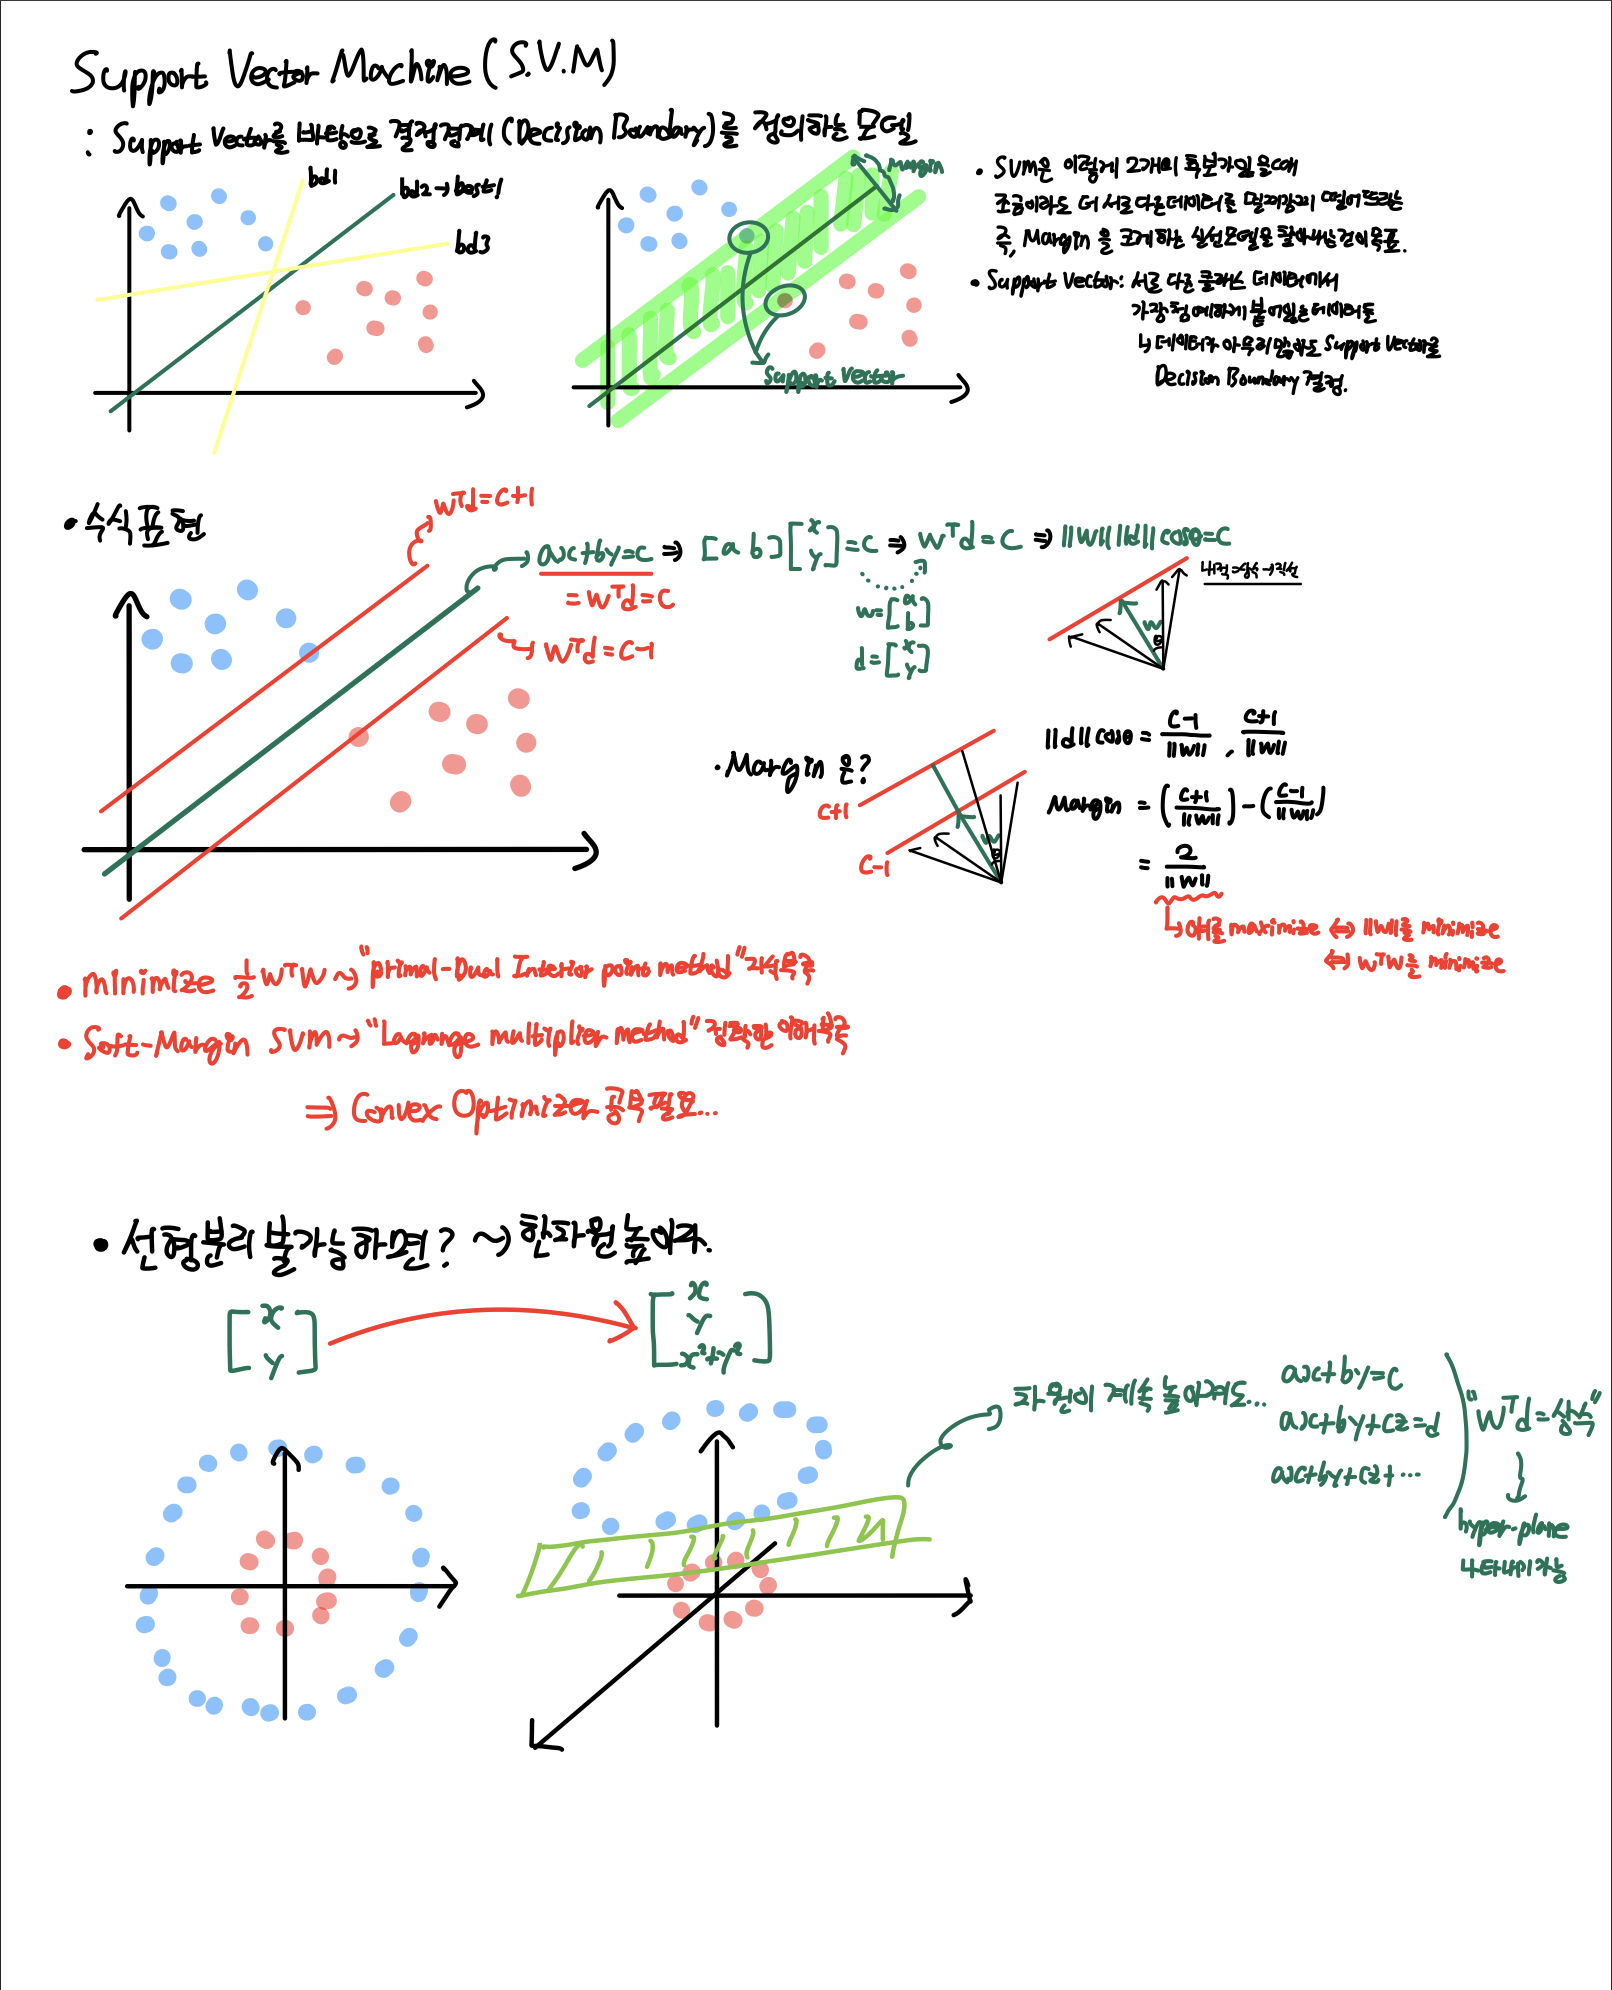 Support Vector Machine (S.V.M)
: Support Vector를 바탕으로 결정경계 (Decision Boundary)를 정의하는 모델
bd1
bd2 → best!
bd3
Margin
Support Vector
• SVM은 이렇게 2개의 후보가 있을때
조금이라도 더 서로 다른 데이터를 멀찌감치 떨어뜨리는
즉, Margin 을 크게하는 실선모델을 찾아내는것이 목표.
• Support Vector: 서로 다른 클래스 데이터에서
가장 첨예하게 붙어있는 데이터들
↳ 데이터가 아무리 많아도 Support Vector로
Decision Boundary 결정.
• 수식표현
wᵀd = c+1
ax+by=c ⇒ [a b][x y] = c ⇒ wᵀd = c ⇒ ||w|| ||d|| cosθ = c
= wᵀd = c
wᵀd = c-1
w = [a b]
d = [x y]
내적=상수 → 직선
w
θ
• Margin 은?
c+1
c-1
w
θ
||d|| cosθ = c-1/||w|| , c+1/||w||
Margin = (c+1/||w||) - (c-1/||w||)
= 2/||w||
↳ 얘를 maximize ⇔ ||w||를 minimize
⇔ wᵀw를 minimize
• minimize 1/2 wᵀw ~> "primal-Dual Interior point method" 지식부족
• Soft-Margin SVM ~> "Lagrange multiplier method" 정확한 이해부족
⇒ Convex Optimizer 공부필요...
• 선형분리 불가능하면? ~> 한차원 높이자.
[x y]
[x y x²+y²]
차원이 계속 높아져도...
ax+by=c
ax+by+cz=d
ax+by+cz+...
"wᵀd = 상수"
hyper-plane
나타내기 가능